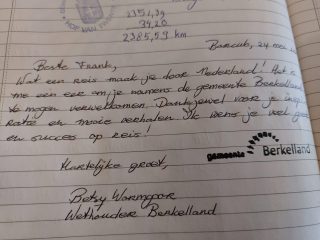 2351,39
34,20
2385,59 km
Borculo, 24 mei
Beste Frank,
Wat een reis maak je door Nederland! Het is
me een eer om je namens de gemeente Berkelland
te mogen verwelkomen. Dankjewel voor je inspi-
ratie en mooie verhalen. Ik wens je veel
en succes op reis!
Hartelijke groet,
gemeente Berkelland
Betsy Wormgoor
Wethouder Berkelland